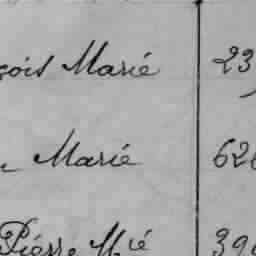 çois Marié 23
Marié 626
Pierre M^ié 390